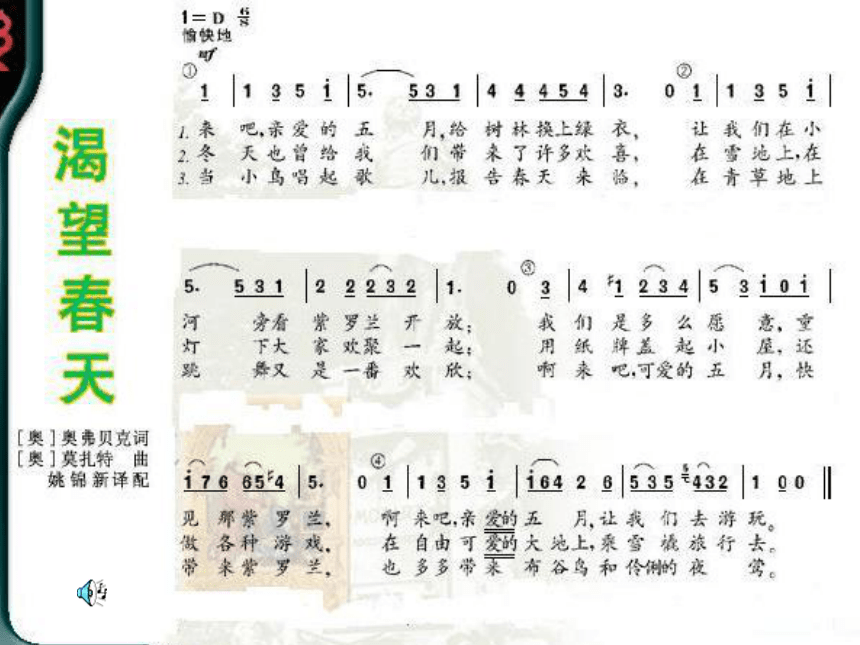 渴望春天
[奥]奥弗贝克词
[奥]莫扎特 曲
姚锦新译配
1=D 6/8
愉快地
mf
① ②
1 | 1 3 5 i | 5. 5 3 1 | 4 4 4 5 4 | 3. 0 1 | 1 3 5 i |
1. 来 吧,亲 爱 的 五 月,给 树 林 换上绿 衣, 让 我 们 在 小
2. 冬 天 也 曾 给 我 们 带 来 了 许 多 欢 喜, 在 雪 地 上,在
3. 当 小 鸟 唱 起 歌 儿,报 告 春 天 来 临, 在 青 草 地 上
③
5. 5 3 1 | 2 2 2 3 2 | 1. 0 3 | 4 #1 2 3 4 | 5 3 i 0 i |
河 旁看 紫 罗 兰 开 放; 我 们 是 多 么 愿 意, 重
灯 下大 家 欢 聚 一 起; 用 纸 牌 盖 起 小 屋, 还
跳 舞又 是 一 番 欢 欣; 啊 来 吧,可爱的 五 月, 快
④
i 7 6 6 5 #4 | 5. 0 i | 1 3 5 i | i 6 4 2 6 | 5 3 5 4 3 2 | 1 0 0 ‖
见 那 紫 罗 兰, 啊 来吧,亲 爱的 五 月,让 我 们 去 游 玩。
做 各 种 游 戏, 在 自 由 可 爱的 大 地上,乘 雪 橇 旅 行 去。
带 来 紫 罗 兰, 也 多 多 带 来 布 谷鸟 和 伶俐的 夜 莺。